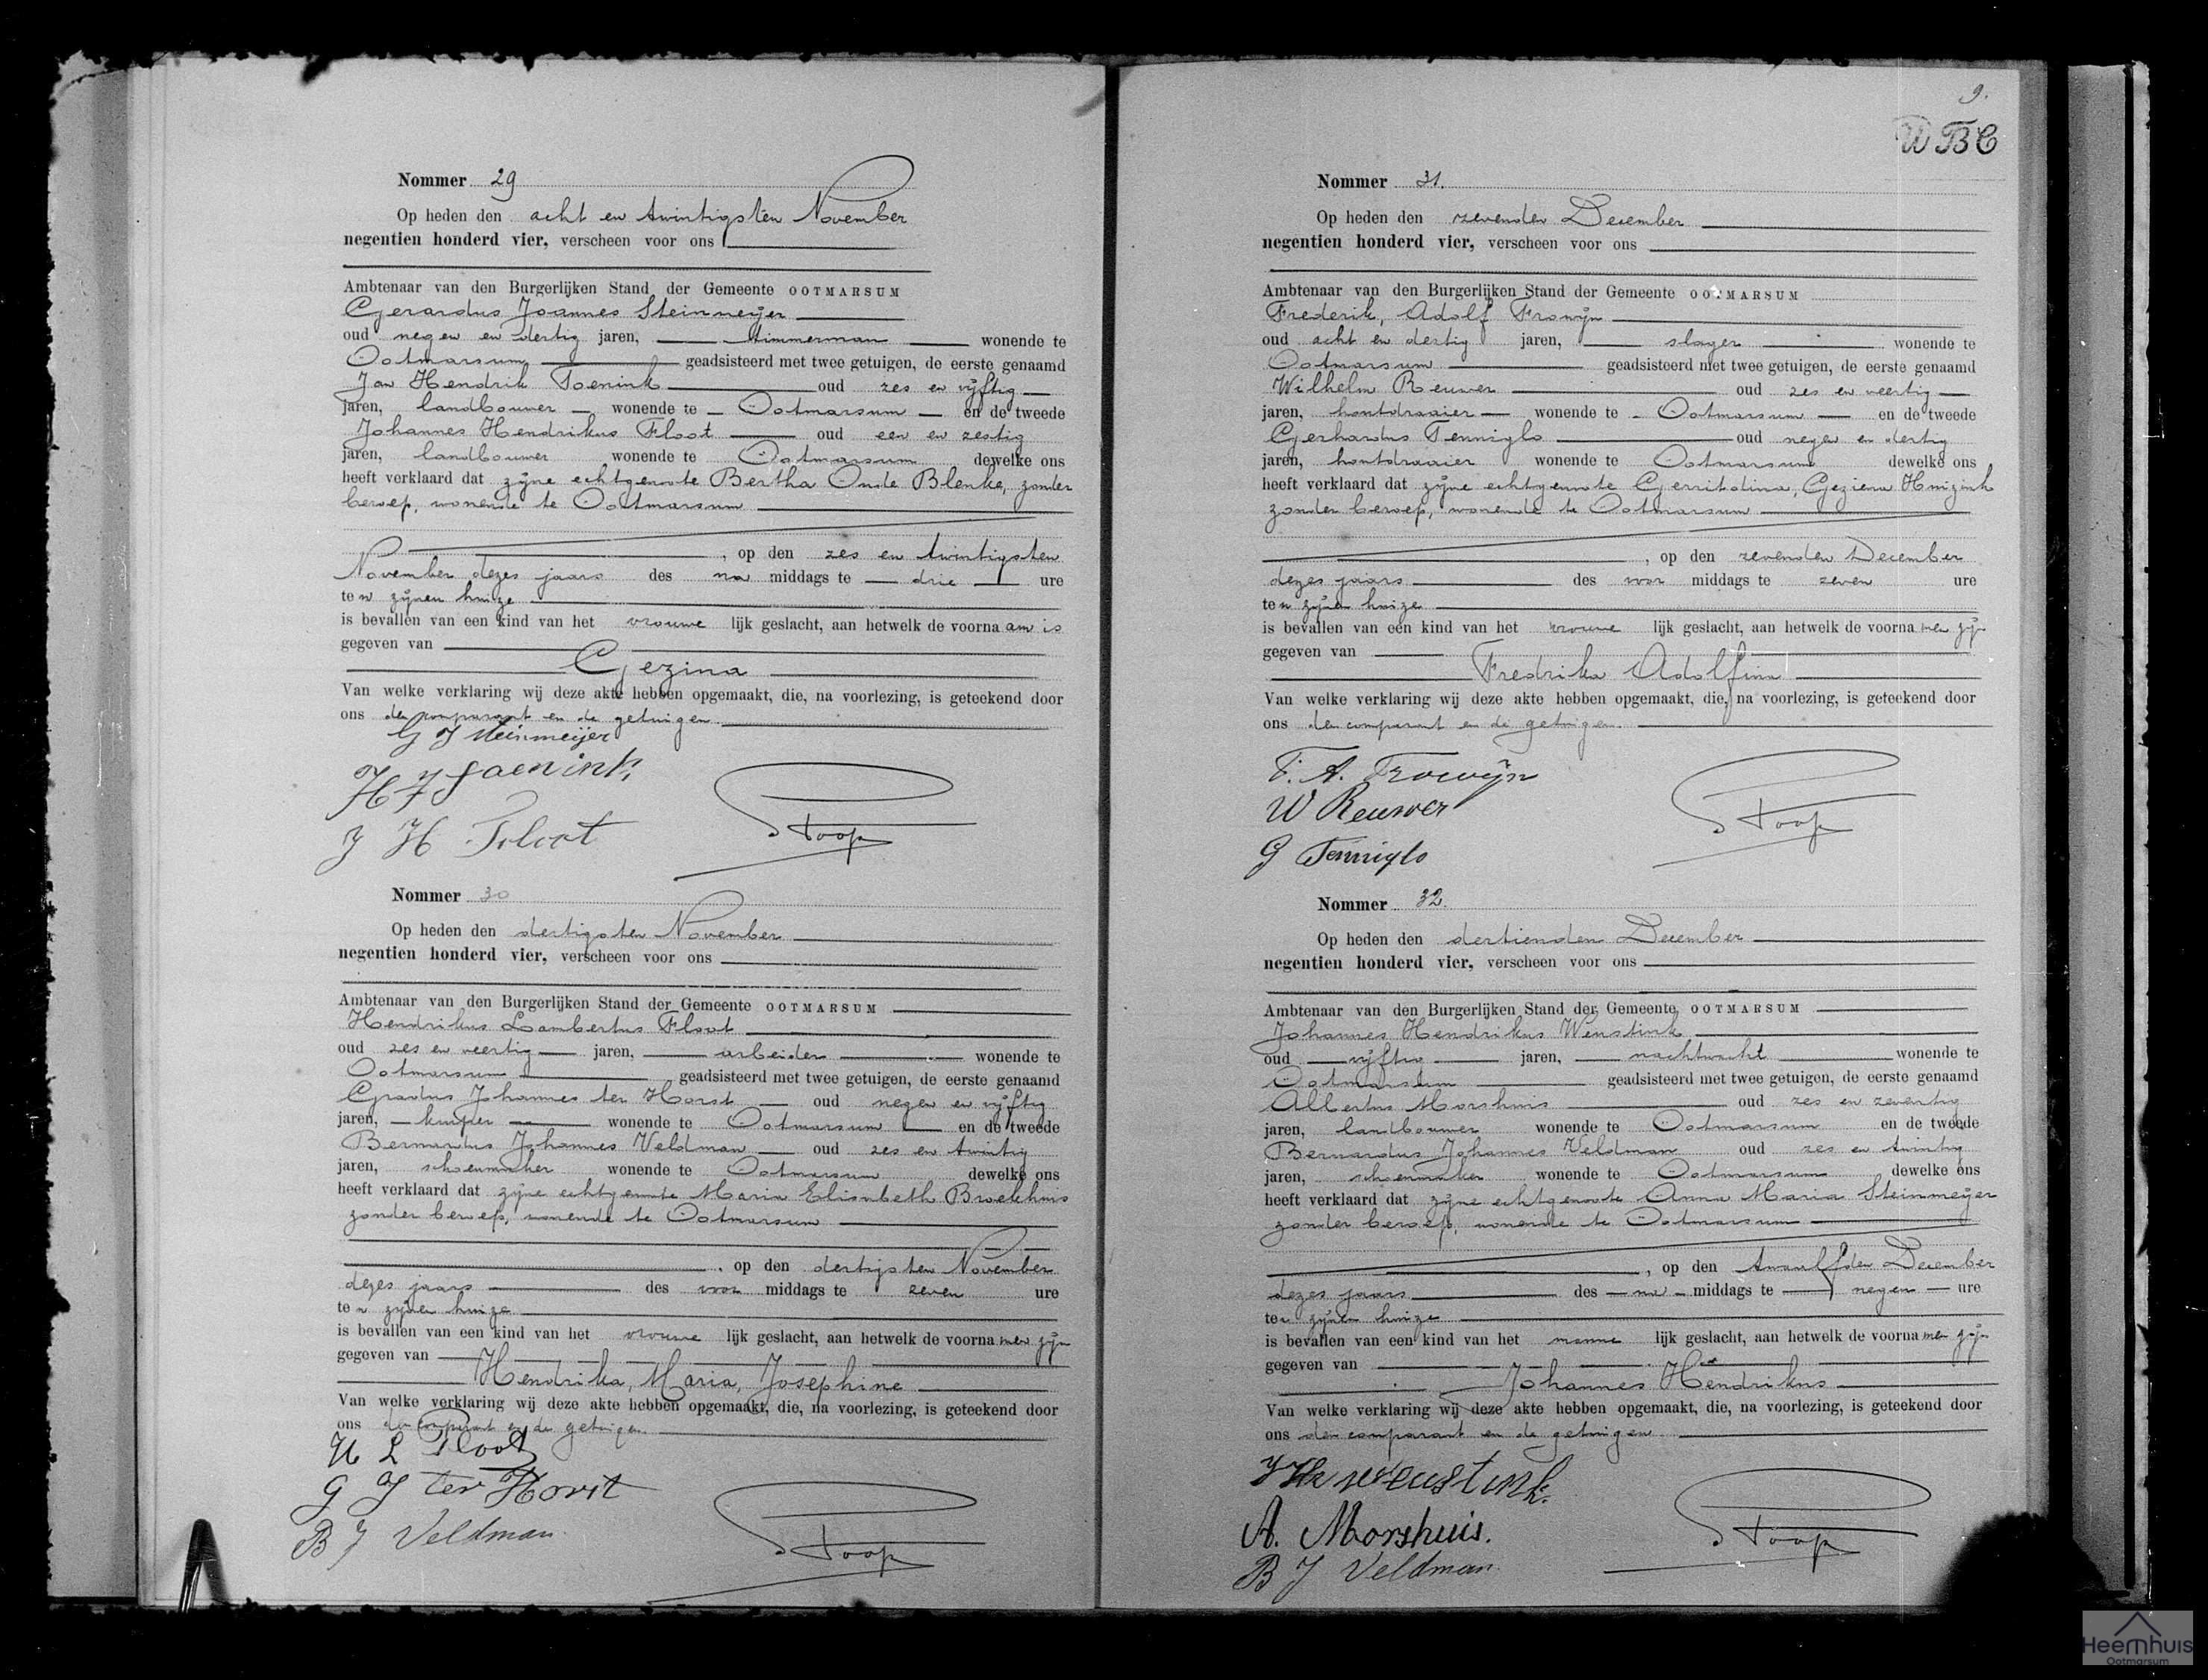 Nommer 29
Op heden den acht en twintigsten November
negentien honderd vier, verscheen voor ons
Ambtenaar van den Burgerlijken Stand der Gemeente OOTMARSUM
Gerardus Joannes Steinmeijer
oud negen en dertig jaren, timmerman wonende te
Ootmarsum geadsisteerd met twee getuigen, de eerste genaamd
Jan Hendrik oud zes en vijftig
jaren, landbouwer wonende te Ootmarsum en de tweede
Johannes Hendrikus Floot oud een en zestig
jaren, landbouwer wonende te Ootmarsum dewelke ons
heeft verklaard dat zijne echtgenoote Bertha Oude Blenke, zonder
beroep, wonende te Ootmarsum
, op den zes en twintigsten
November dezes jaars des na middags te drie ure
ten zijnen huize
is bevallen van een kind van het vrouwe lijk geslacht, aan hetwelk de voorna am is
gegeven van
Gezina
Van welke verklaring wij deze akte hebben opgemaakt, die, na voorlezing, is geteekend door
ons den comparant en de getuigen.
G J Steinmeijer
J H Floot
Nommer 30
Op heden den dertigsten November
negentien honderd vier, verscheen voor ons
Ambtenaar van den Burgerlijken Stand der Gemeente OOTMARSUM
Hendrikus Lambertus Floot
oud zes en veertig jaren, arbeider wonende te
Ootmarsum geadsisteerd met twee getuigen, de eerste genaamd
Gradus Johannes ter Horst oud negen en vijftig
jaren, kuiper wonende te Ootmarsum en de tweede
Bernardus Johannes Veldman oud zes en twintig
jaren, schoenmaker wonende te Ootmarsum dewelke ons
heeft verklaard dat zijne echtgenoote Maria Elisabeth Broekhuis
zonder beroep, wonende te Ootmarsum
, op den dertigsten November
dezes jaars des voor middags te zeven ure
ten zijnen huize
is bevallen van een kind van het vrouwe lijk geslacht, aan hetwelk de voorna men zijn
gegeven van
Hendrika, Maria, Josephine
Van welke verklaring wij deze akte hebben opgemaakt, die, na voorlezing, is geteekend door
ons den comparant en de getuigen.
H L Floot
G J ter Horst
B J Veldman
9.
WBC
Nommer 31.
Op heden den zevenden December
negentien honderd vier, verscheen voor ons
Ambtenaar van den Burgerlijken Stand der Gemeente OOTMARSUM
Frederik, Adolf Frowijn
oud acht en dertig jaren, slager wonende te
Ootmarsum geadsisteerd met twee getuigen, de eerste genaamd
Wilhelm Reuwer oud zes en veertig
jaren, houtdraaier wonende te Ootmarsum en de tweede
Gerhardus Tenniglo oud negen en dertig
jaren, houtdraaier wonende te Ootmarsum dewelke ons
heeft verklaard dat zijne echtgenoote Gerritdina, Geziena Huizink
zonder beroep, wonende te Ootmarsum
, op den zevenden December
dezes jaars des voor middags te zeven ure
ten zijnen huize
is bevallen van een kind van het vrouwe lijk geslacht, aan hetwelk de voorna men zijn
gegeven van
Fredrika Adolfina
Van welke verklaring wij deze akte hebben opgemaakt, die, na voorlezing, is geteekend door
ons den comparant en de getuigen.
F. A. Frowijn
W Reuwer
G Tenniglo
Nommer 32.
Op heden den dertienden December
negentien honderd vier, verscheen voor ons
Ambtenaar van den Burgerlijken Stand der Gemeente OOTMARSUM
Johannes Hendrikus Weustink
oud vijftig jaren, nachtwacht wonende te
Ootmarsum geadsisteerd met twee getuigen, de eerste genaamd
Albertus Morshuis oud zes en zeventig
jaren, landbouwer wonende te Ootmarsum en de tweede
Bernardus Johannes Veldman oud zes en twintig
jaren, schoenmaker wonende te Ootmarsum dewelke ons
heeft verklaard dat zijne echtgenoote Anna Maria Steinmeijer
zonder beroep, wonende te Ootmarsum
, op den twaalfden December
dezes jaars des na middags te negen ure
ten zijnen huize
is bevallen van een kind van het manne lijk geslacht, aan hetwelk de voorna men zijn
gegeven van
Johannes Hendrikus
Van welke verklaring wij deze akte hebben opgemaakt, die, na voorlezing, is geteekend door
ons den comparant en de getuigen
J H Weustink.
A. Morshuis.
B J Veldman
Heemhuis
Ootmarsum